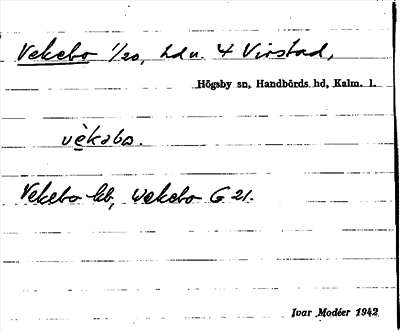 Vekebo 1/20, hdn. 4 Virstad,
Högsby sn, Handbörds hd, Kalm. l.
vẹ̀kəbo.
Vekebo kb, Wekebo G 21.
Ivar Modéer 1942